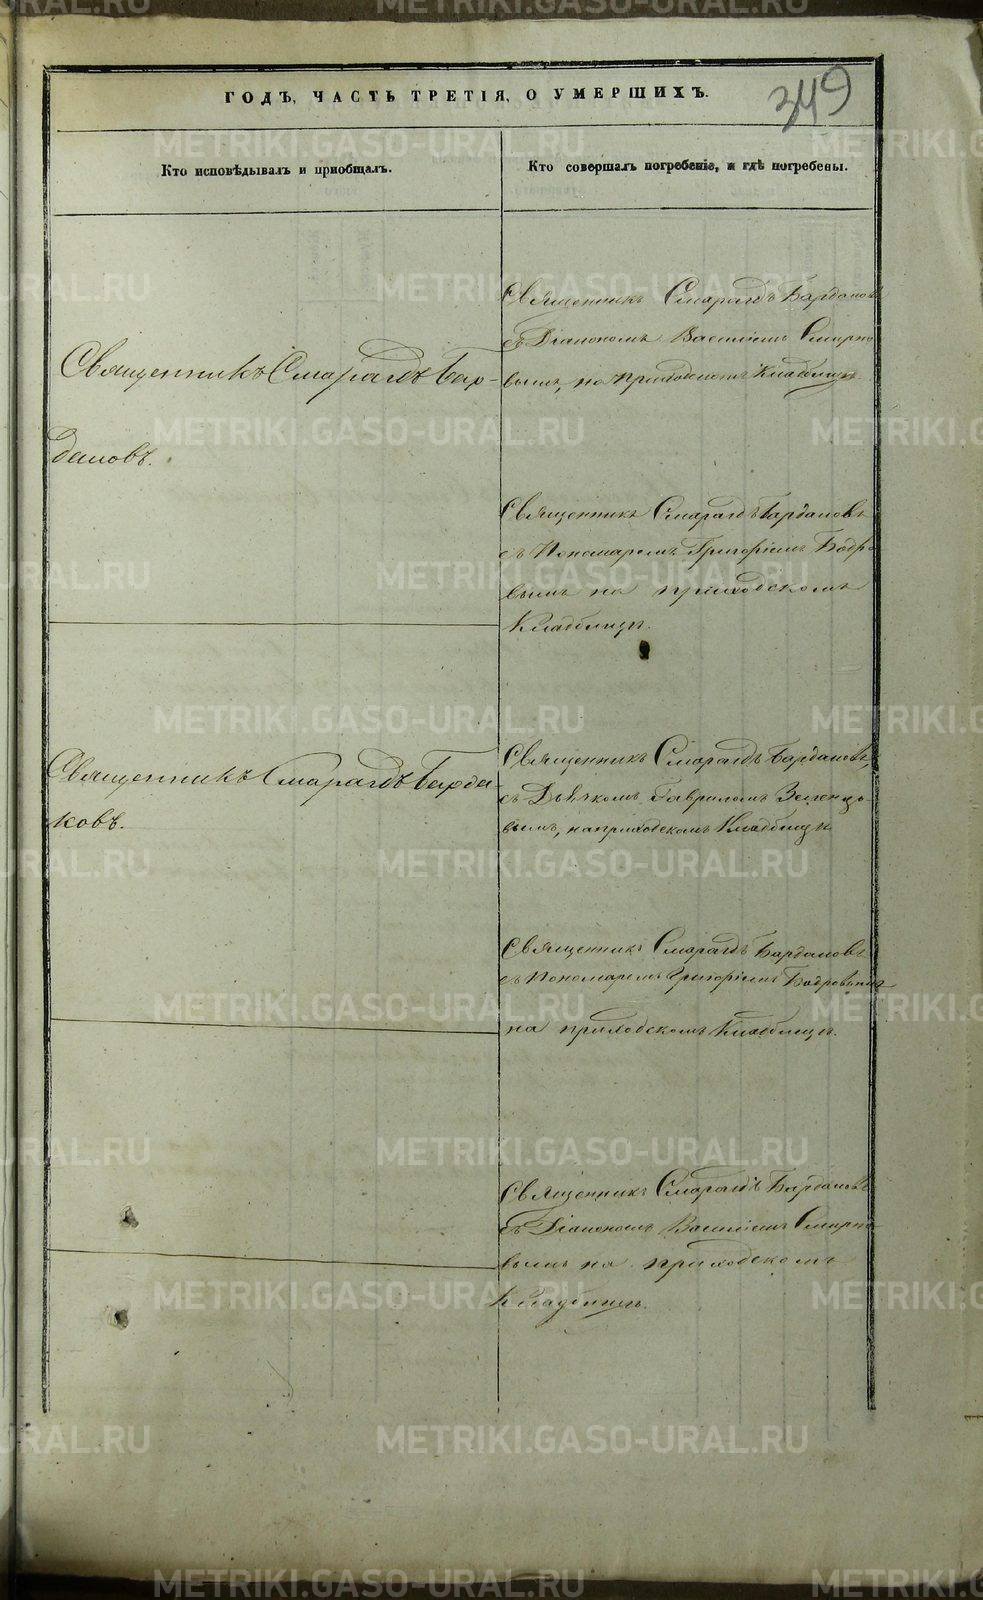 349
ГОДЪ, ЧАСТЬ ТРЕТІЯ, О УМЕРШИХЪ.
Кто исповѣдывалъ и приобщалъ.
Кто совершалъ погребеніе, и гдѣ погребены.
Священникъ Смарагдъ Бар-
даковъ.
Священникъ Смарагдъ Барда-
ковъ.
Священникъ Смарагдъ Бардаковъ
съ Діакономъ Василіемъ Смирно
вымъ, на приходскомъ Кладбищѣ.
Священникъ Смарагдъ Бардаковъ
съ Пономаремъ Григоріемъ Бодро
вымъ на приходскомъ
Кладбищѣ.
Священникъ Смарагдъ Бардаковъ,
съ Дьячкомъ Гавриломъ Зеленцо-
вымъ, на приходскомъ Кладбищѣ.
Священникъ Смарагдъ Бардаковъ
съ Пономаремъ Григоріемъ Бодровымъ
на приходскомъ Кладбищѣ.
Священникъ Смарагдъ Бардаковъ
съ Діакономъ Василіемъ Смирно
вымъ на приходскомъ
Кладбищѣ.
METRIKI.GASO-URAL.RU